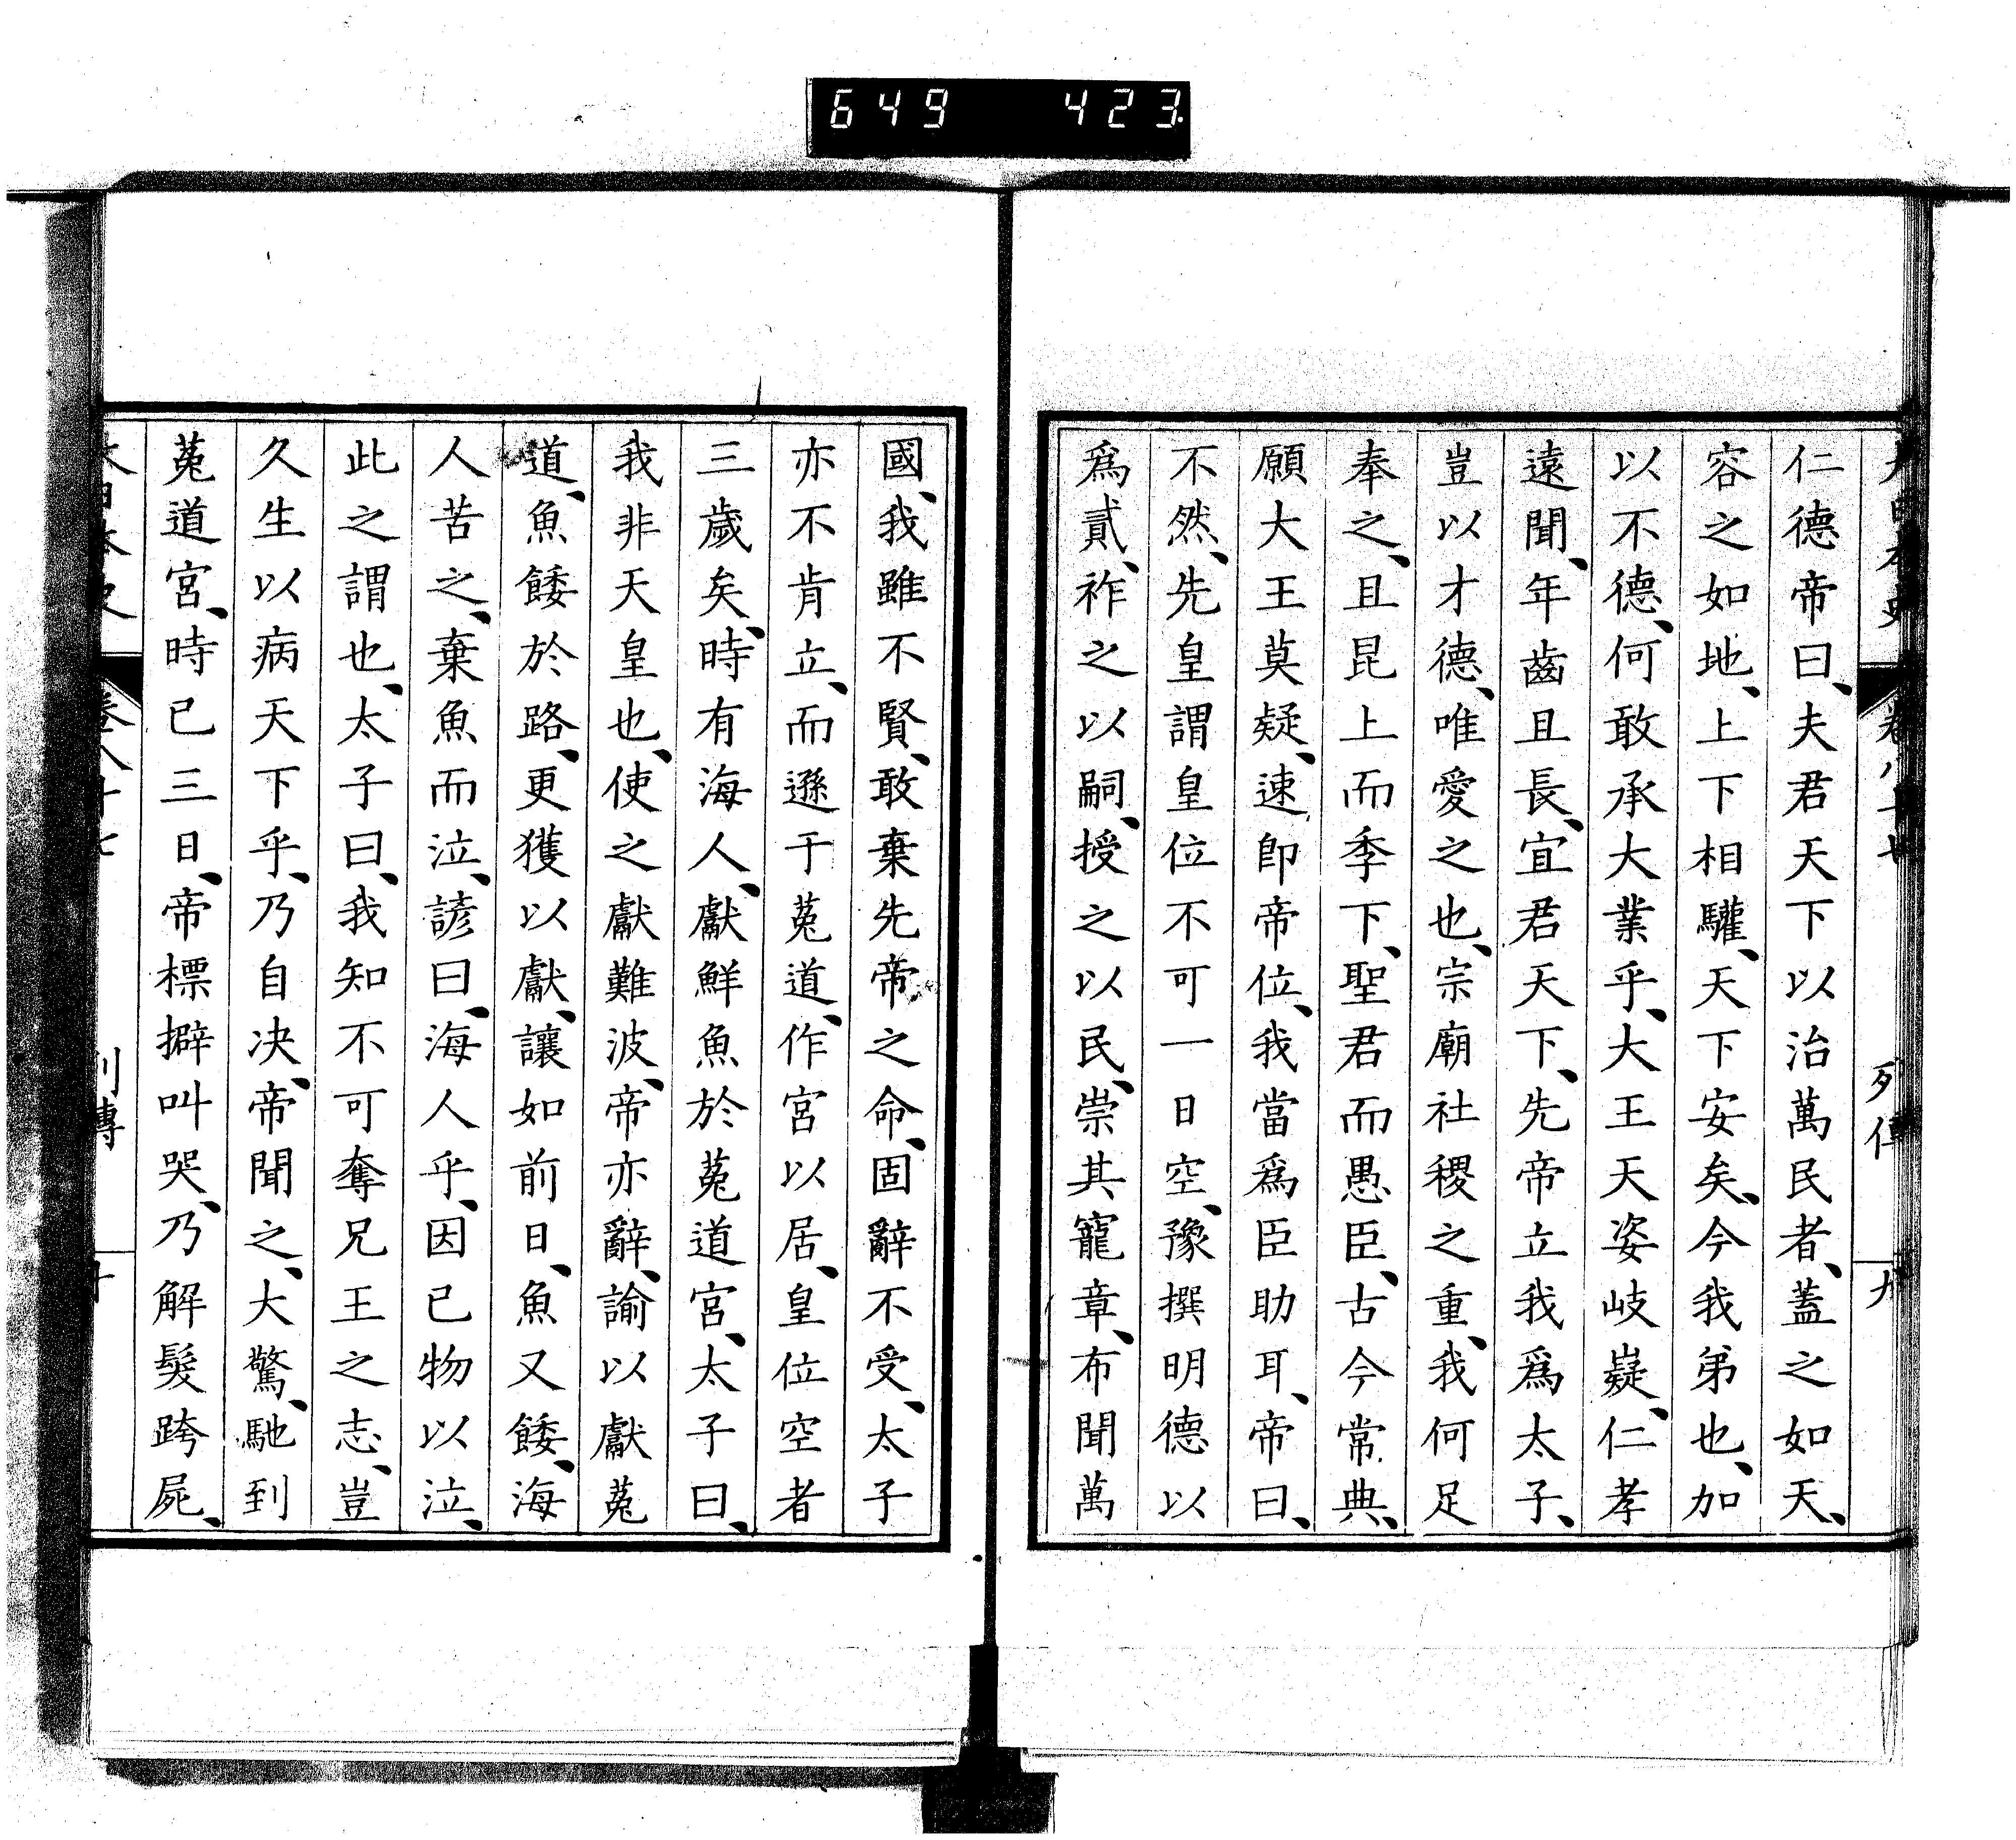 649 423
大日本史 卷八十七 列傳 九
仁德帝曰、夫君天下以治萬民者、蓋之如天、
容之如地、上下相驩、天下安矣、今我弟也、加
以不德、何敢承大業乎、大王天姿岐嶷、仁孝
遠聞、年齒且長、宜君天下、先帝立我爲太子、
豈以才德、唯愛之也、宗廟社稷之重、我何足
奉之、且昆上而季下、聖君而愚臣、古今常典、
願大王莫疑、速卽帝位、我當爲臣助耳、帝曰、
不然、先皇謂皇位不可一日空、豫撰明德以
爲貳、祚之以嗣、授之以民、崇其寵章、布聞萬
國、我雖不賢、敢棄先帝之命、固辭不受、太子
亦不肯立、而遜于菟道、作宮以居、皇位空者
三歲矣、時有海人、獻鮮魚於菟道宮、太子曰、
我非天皇也、使之獻難波、帝亦辭、諭以獻菟
道、魚餧於路、更獲以獻、讓如前日、魚又餧、海
人苦之、棄魚而泣、諺曰、海人乎、因己物以泣、
此之謂也、太子曰、我知不可奪兄王之志、豈
久生以病天下乎、乃自决、帝聞之、大驚、馳到
菟道宮、時已三日、帝標擗叫哭、乃解髮跨屍、
大日本史 卷八十七 列傳